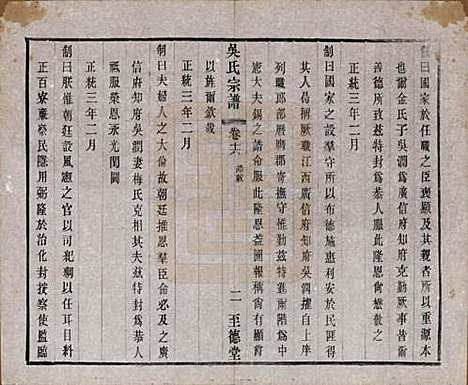 制曰國家於任職之臣喪顯及其親者所以重源本
也爾金氏子吳潤為廣信府知府克勤厥事實由
善德所致兹特封為恭人服此隆恩尚懋敬哉
正統三年二月
制曰國家之設羣守所以布德施惠利安於民匪得
其人曷稱厥職江西廣信府知府吳潤擢自上庠
列職郎部歷膺郡寄撫守惟勤兹特兩階為中
憲大夫錫之誥命服此隆恩益圖報稱尚前
以旌爾欽哉
正統三年二月
吳氏宗譜
卷十六
誥敕
二
至德堂
制曰夫婦人之大倫故朝廷推恩羣臣命必及之廣
信府知府吳潤妻梅氏克相其夫兹特封為恭人
祗服榮恩永光閨閫
正統三年二月
制曰朕惟朝廷設風憲之官以司紀綱以任耳目料
正百寮療民隱用弼隆於治化封按察使監臨